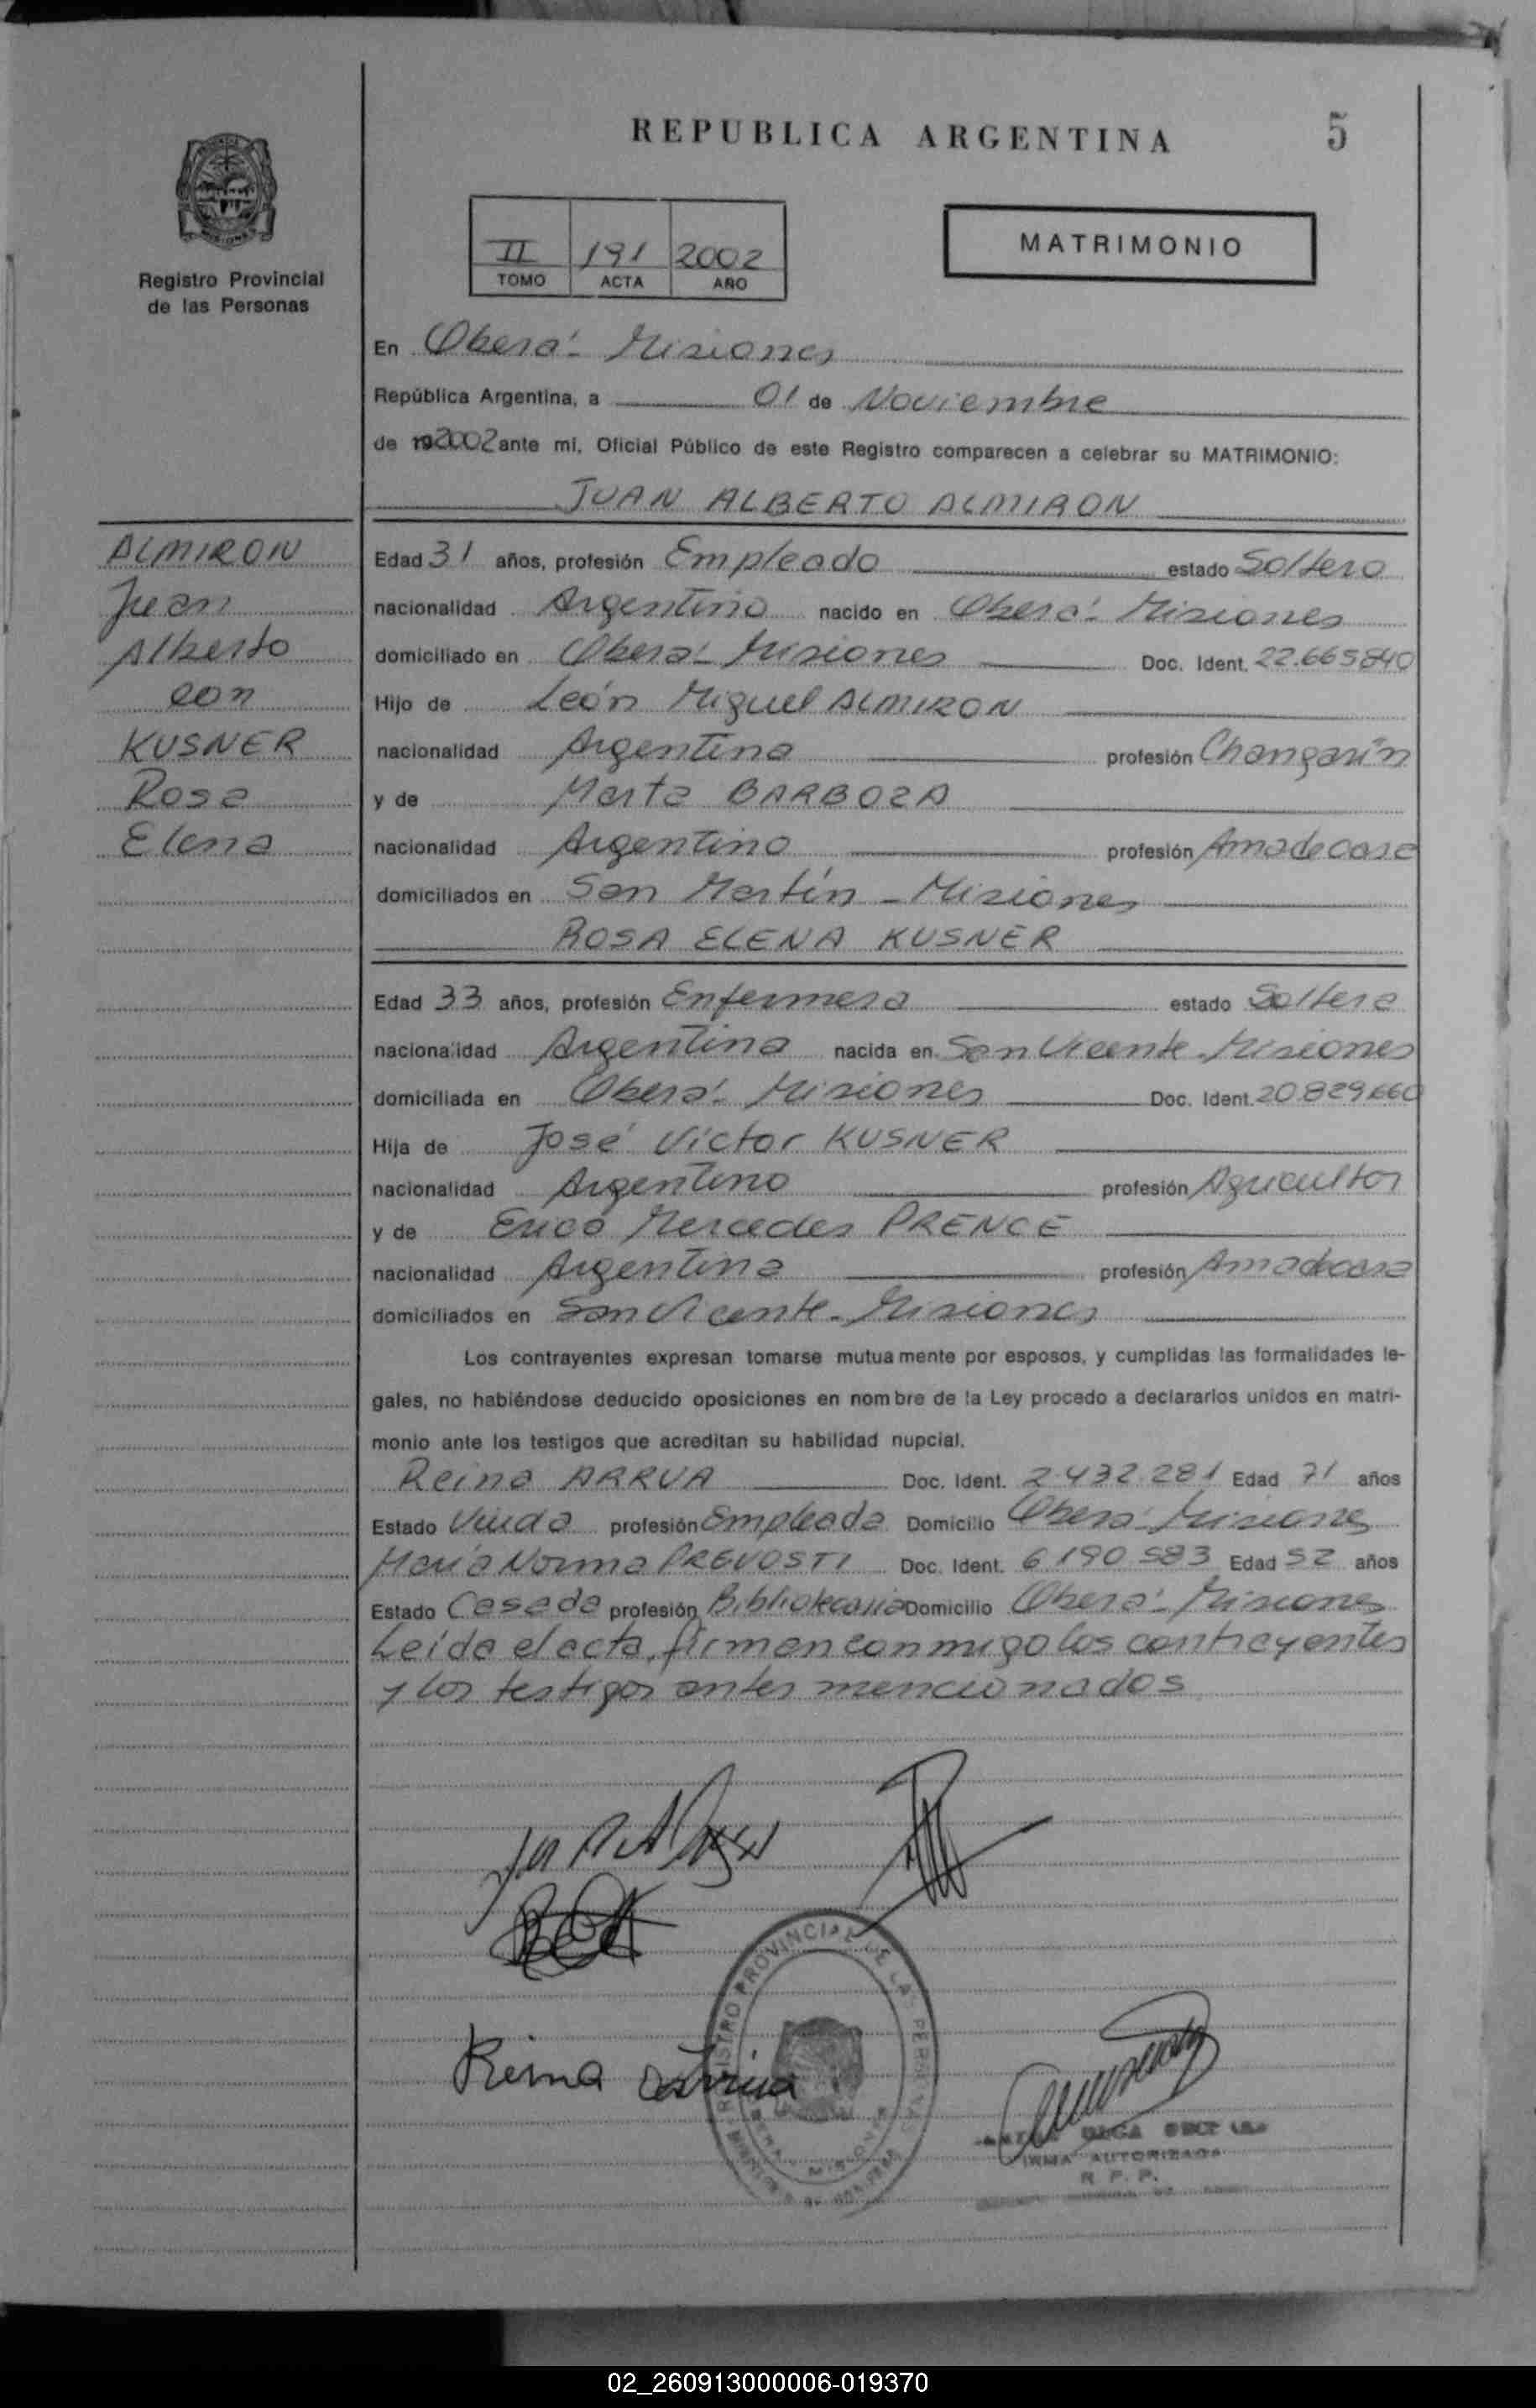 REPUBLICA ARGENTINA
5
Registro Provincial
de las Personas
II 191 2002
TOMO ACTA AÑO
MATRIMONIO
En Oberá - Misiones
República Argentina, a 01 de Noviembre
de 192002 ante mi, Oficial Público de este Registro comparecen a celebrar su MATRIMONIO:
JUAN ALBERTO ALMIRON
ALMIRON
Juan
Alberto
con
KUSNER
Rosa
Elena
Edad 31 años, profesión Empleado estado Soltero
nacionalidad Argentino nacido en Oberá - Misiones
domiciliado en Oberá - Misiones Doc. Ident. 22.665840
Hijo de León Miguel ALMIRON
nacionalidad Argentina profesión Changarín
y de Marta BARBOZA
nacionalidad Argentino profesión Ama de casa
domiciliados en San Martín - Misiones
ROSA ELENA KUSNER
Edad 33 años, profesión Enfermera estado Soltera
nacionalidad Argentina nacida en San Vicente - Misiones
domiciliada en Oberá - Misiones Doc. Ident. 20.829.660
Hija de José Victor KUSNER
nacionalidad Argentino profesión Agricultor
y de Mercedes PRENCE
nacionalidad Argentina profesión Ama de casa
domiciliados en San Vicente - Misiones
Los contrayentes expresan tomarse mutuamente por esposos, y cumplidas las formalidades le-
gales, no habiéndose deducido oposiciones en nombre de la Ley procedo a declararlos unidos en matri-
monio ante los testigos que acreditan su habilidad nupcial.
Reina ARRUA Doc. Ident. 2.432.281 Edad 71 años
Estado Viuda profesión Empleada Domicilio Oberá - Misiones
María Norma PREVOSTI Doc. Ident. 6.190.583 Edad 52 años
Estado Casada profesión Bibliotecaria Domicilio Oberá - Misiones
Leída el acta, firman conmigo los contrayentes
y los testigos antes mencionados
Reina Arrua
REGISTRO PROVINCIAL DE LAS PERSONAS
FIRMA AUTORIZADA
R. P. P.
02_260913000006-019370